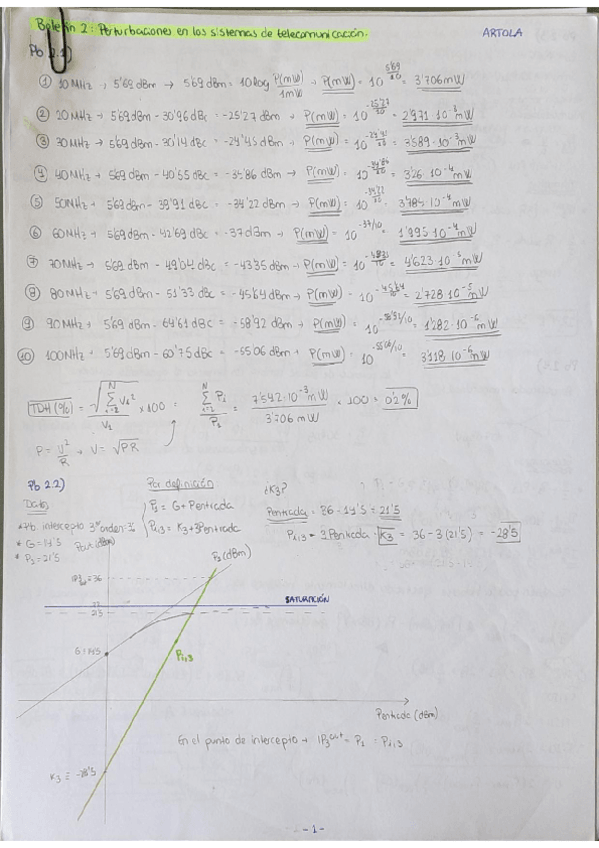 Boletín 2: Perturbaciones en los sistemas de telecomunicación.
ARTOLA
Pb 2.1)
① 10MHz → 5'69 dBm → 5'69 dBm = 10log P(mW)/1mW → P(mW) = 10^(5'69/10) = 3'706 mW
② 20MHz → 5'69 dBm - 30'96 dBc = -25'27 dBm → P(mW) = 10^(-25'27/10) = 2'971·10^-3 mW
③ 30MHz → 5'69 dBm - 30'14 dBc = -24'45 dBm → P(mW) = 10 = 3'589·10^-3 mW
④ 40MHz → 5'69 dBm - 40'55 dBc = -34'86 dBm → P(mW) = 10^(-34'86/10) = 3'26·10^-4 mW
⑤ 50MHz → 5'69 dBm - 39'91 dBc = -34'22 dBm → P(mW) = 10 = 3'785·10^-4 mW
⑥ 60MHz → 5'69 dBm - 42'69 dBc = -37 dBm → P(mW) = 10^(-37/10) = 1'995·10^-4 mW
⑦ 70MHz → 5'69 dBm - 49'04 dBc = -43'35 dBm → P(mW) = 10 = 4'623·10^-5 mW
⑧ 80MHz → 5'69 dBm - 51'33 dBc = -45'64 dBm → P(mW) = 10^(-45'64/10) = 2'728·10^-5 mW
⑨ 90MHz → 5'69 dBm - 64'61 dBc = -58'92 dBm → P(mW) = 10^(-58'92/10) = 1'282·10^-6 mW
⑩ 100MHz → 5'69 dBm - 60'75 dBc = -55'06 dBm → P(mW) = 10^(-55'06/10) = 3'118·10^-6 mW
TDH (%) = √(∑ᵢ₌₂ᴺ Vᵢ²)/V₁ × 100 = ∑ᵢ₌₂ᴺ Pᵢ/P₁ = 7'542·10^-3 mW / 3'706 mW × 100 = 0'2%
P = V²/R → V = √PR
Pb 2.2)
Por definición
¿K3?
Datos
P₁ = G + Pentrada
Pentrada = 36 - 14'5 = 21'5
* Pto. intercepto 3er orden: 36
Pi,3 = K3 + 3Pentrada
Pi,3 - 3Pentrada = K3 = 36 - 3(21'5) = -28'5
* G = 14'5
* P₁ = 21'5
Pout (dBm)
P₁ (dBm)
= 36
SATURACIÓN
21'5
G = 14'5
Pi,3
Pentrada (dBm)
En el punto de intercepto → IP3^out = P₁ = Pi,3
K3 = -28'5
- 1 -